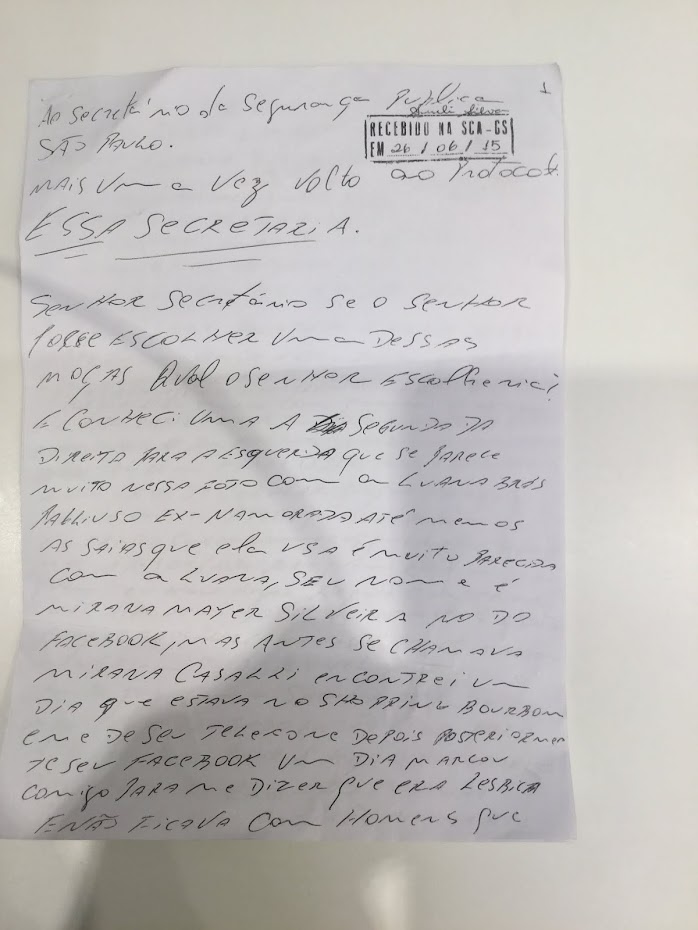 1
Ao Secretário da Segurança Publica
SÃO PAULO.
RECEBIDO NA SCA-GS
EM 26 / 06 / 15
MAIS UMA VEZ VOLTO ao Protocol.
ESSA SECRETARIA.
SENHOR SECRETÁRIO SE O SENHOR
FOSSE ESCOLHER UMA DESSAS
MOÇAS QUAL O SENHOR ESCOLHERIA?
E CONHECI UMA A SEGUNDA DA
DIREITA PARA A ESQUERDA QUE SE PARECE
MUITO NESSA FOTO COM a LUANA BRÁS
EX-NAMORADA ATÉ MEMOS
AS SAIAS QUE ela USA É MUITO PARECIDA
COM a LUANA, SEU NOME É
MIRANA MAYER SILVEIRA NO DO
FACEBOOK, MAS ANTES SE CHAMAVA
MIRANA ENCONTREI UM
DIA QUE ESTAVA NO SHOPPING BOURBOM
e me DE SEU TELEFONE DEPOIS POSTERIORMEN
TE SEU FACEBOOK UM DIA MARCOU
COMIGO PARA ME DIZER QUE ERA LESBICA
E NÃO FICAVA COM HOMENS QUE